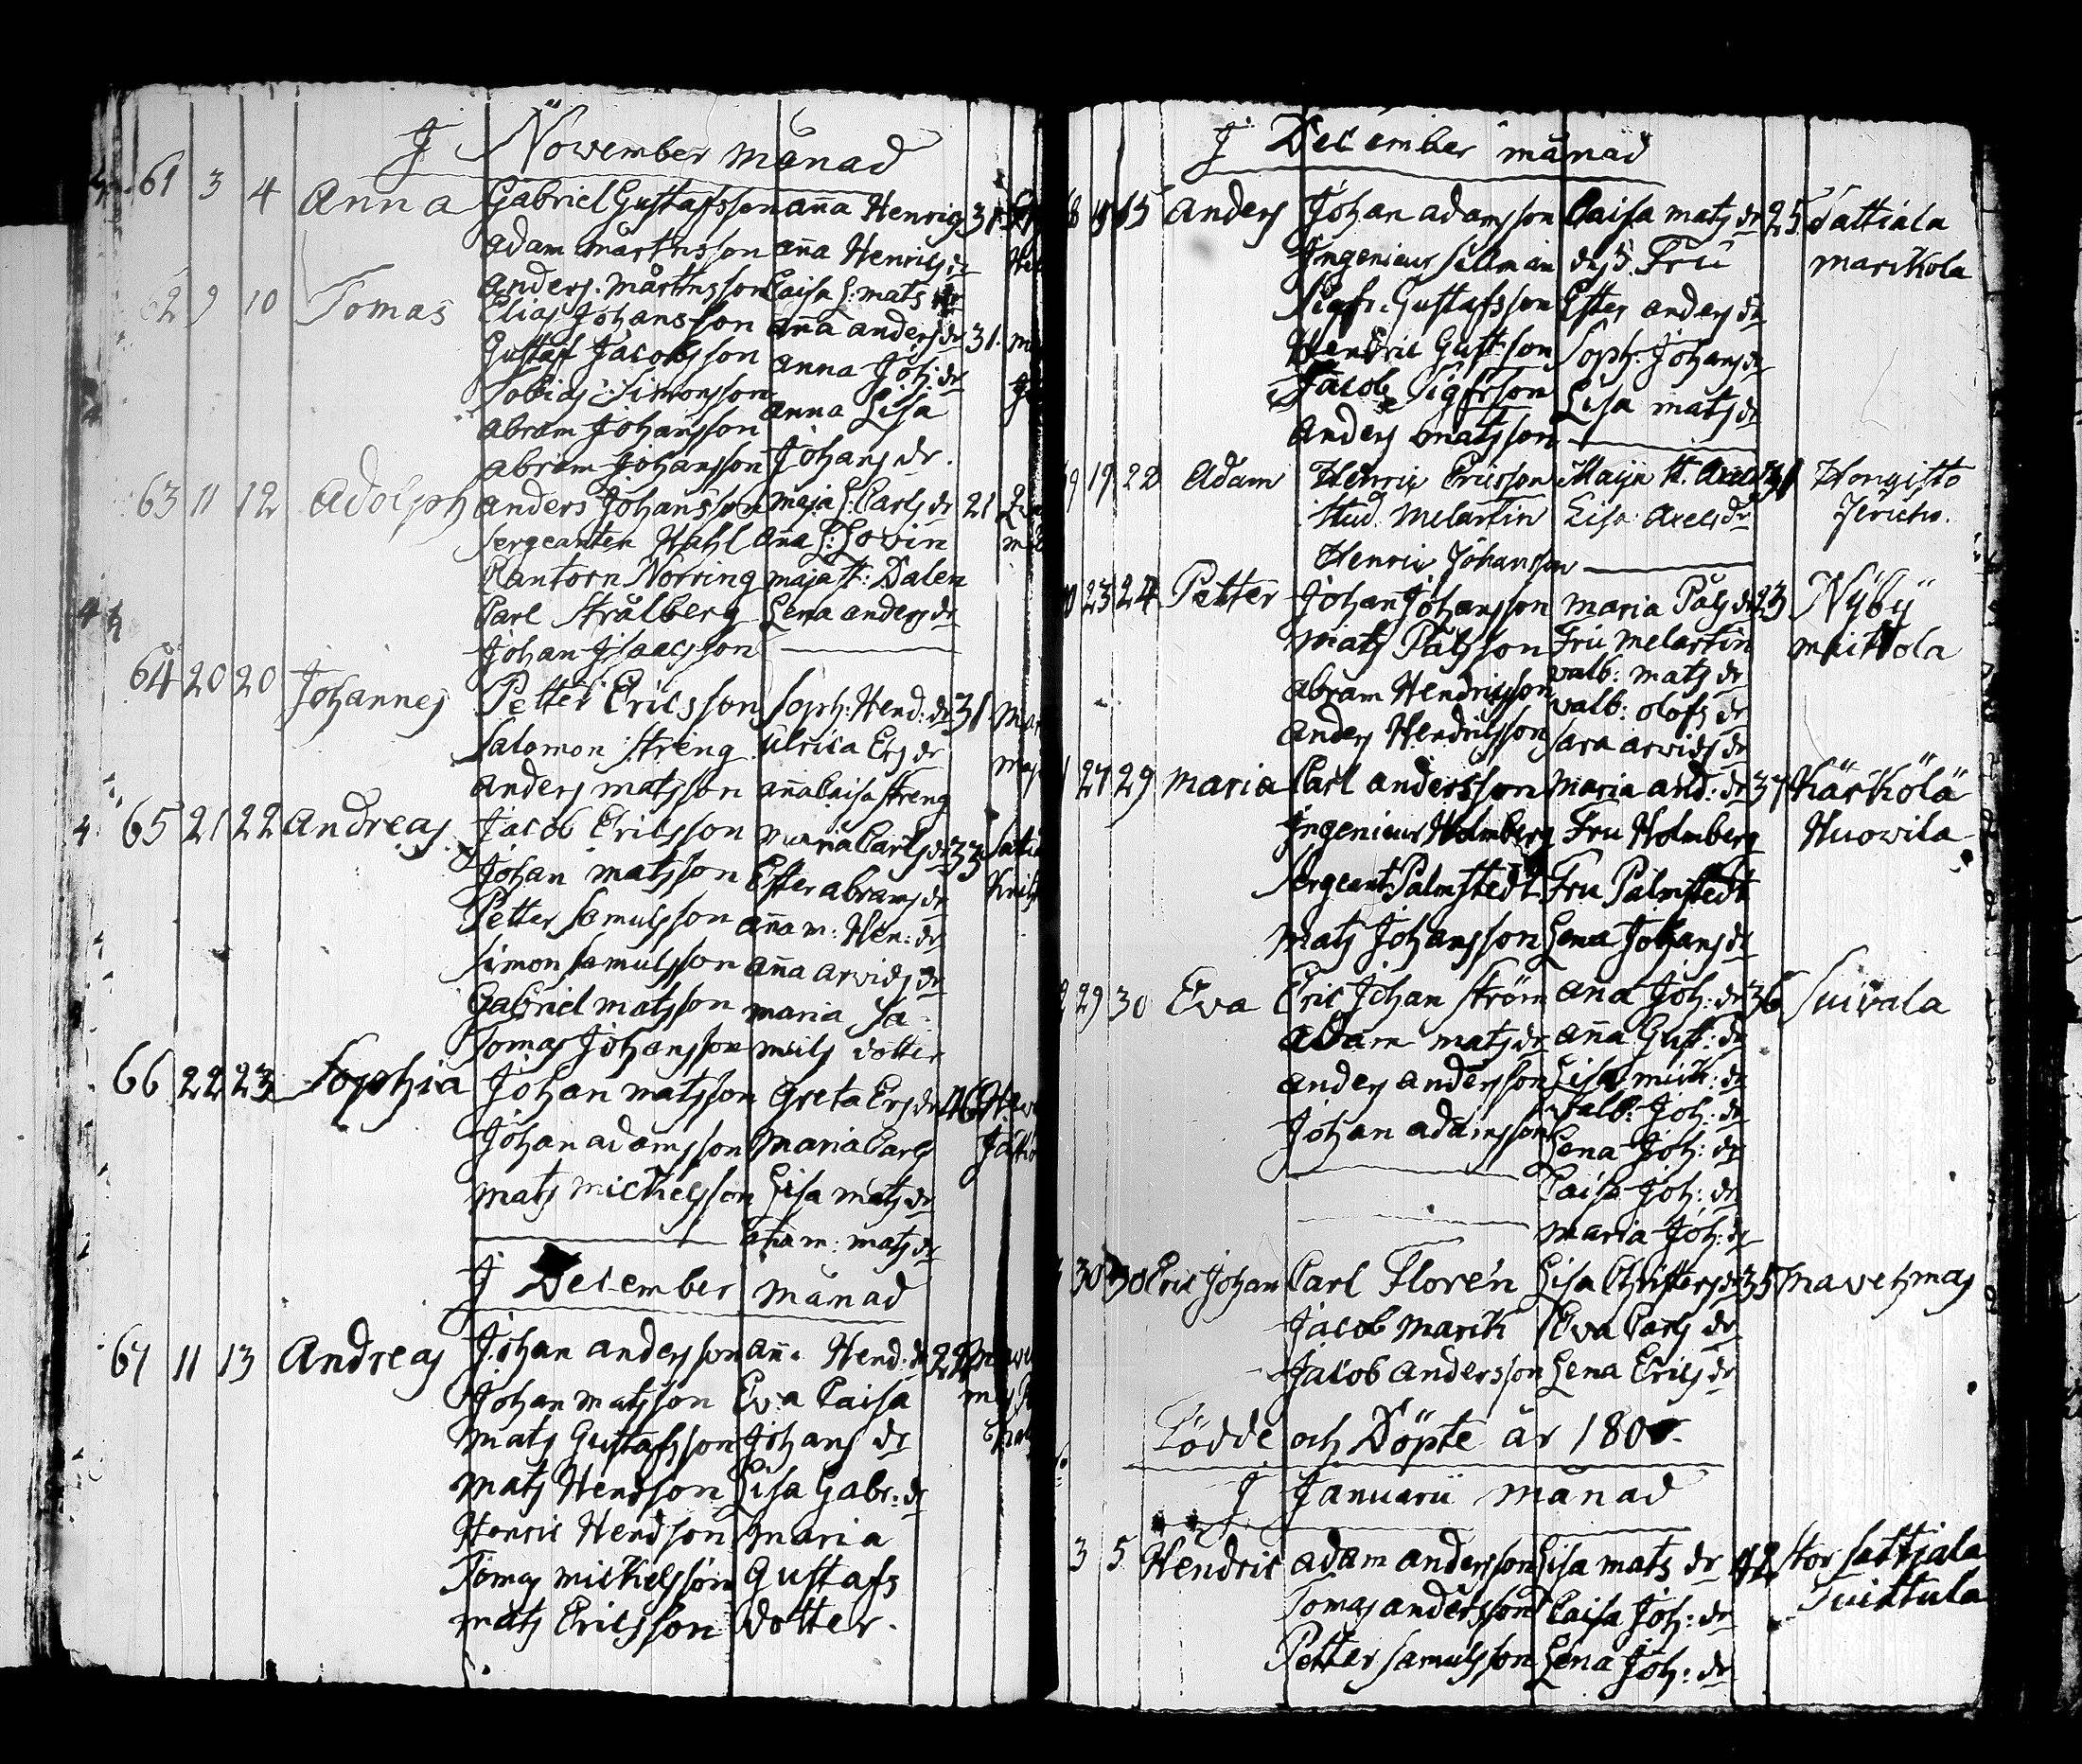 I November månad
61 3 4 Anna Gabriel Gustafsson Anna Henrics 31
Adam Mårtnsson Anna Henrics dr
Anders Mårtnsson Caisa L: Mats dr
62 9 10 Tomas Elias Johansson Anna Anders dr 31
Gustaf Jacobsson Anna Joh: dr
Tobias Simonsson Anna Lisa
Abram Johansson
Abram Johansson Johans dr.
63 11 12 Adolph Anders Johansson Maja L: Carls dr 21
Sergeanten Wahl Ana L: Lovin
Cantorn Norring Maja St: Dalen
Carl Strålberg Lena Anders dr
Johan Isaacsson
64 20 20 Johannes Petter Ericsson Soph: Hend: dr 31
Salomon Streng Ulrica Ers dr
Anders Matsson Anna Caisa Streng
65 21 22 Andreas Jacob Ericsson Maria Carls dr 33
Johan Matsson Ester Abrams dr
Petter Samulsson Anna M: Hen: dr
Simon Samulsson Anna Arvids dr
Gabriel Matsson Maria Sa-
Tomas Johansson muls dotter
66 22 23 Sophia Johan Matsson Greta Ers dr 46
Johan Adamsson Maria Carls
Mats Michelsson Lisa Mats dr
Anna M: Mats dr
I December månad
67 11 13 Andreas Johan Andersson Anna Hend: dr 29
Johan Matsson Eva Caisa
Mats Gustafsson Johans dr
Mats Hendsson Lisa Gabr: dr
Henric Hendsson Maria
Tomas Michelsson Gustafs
Mats Ericsson Dotter.
I December månad
8 15 Anders Johan Adamsson Caisa Mats dr 25 Sattiala
Ingenieur Sillman des s. Fru Marikola
Sigfr: Gustafsson Ester Anders dr
Henric Gust:son Soph: Johans dr
Jacob Sigfrson Lisa Mats dr
Anders Matsson
9 19 22 Adam Henric Ericsson Maija St. Axels 31 Hongisto
Stud. Melartin Lisa Axels dr Jericho.
Henric Johansson
0 23 24 Petter Johan Johansson Maria Påls dr 23 Nÿbÿ
Mats Pålsson Fru Melartin Mattola
Abram Hendricsson Valb: Mats dr
Anders Hendricsson Valb: Olofs dr
Sara Arvids dr
1 27 29 Maria Carl Andersson Maria And: dr 37 Kärkölä
Ingenieur Holmberg Fru Holmberg Huovila
Sergeant Palmstedt Fru Palmstedt
Mats Johansson Lena Johans dr
2 29 30 Eva Eric Johan Ström Ana Joh: dr 36 Suivala
Adam Mats dr Anna Gust: dr
Anders Andersson Lisa Mich: dr
Johan Adamsson Valb: Joh: dr
Lena Joh: dr
Caisa Joh: dr
Maria Joh: dr
30 30 Eric Johan Carl Floren Lisa Christers dr 35 Mavehmas
Jacob Marck Eva Carls dr
Jacob Andersson Lena Erics dr
Födde och Döpte år 180
I Januarii månad
3 5 Hendric Adam Andersson Lisa Mats dr 42 Stor Sattiala
Tomas Andersson Caisa Joh: dr Tuittula
Petter Samulsson Lena Joh: dr